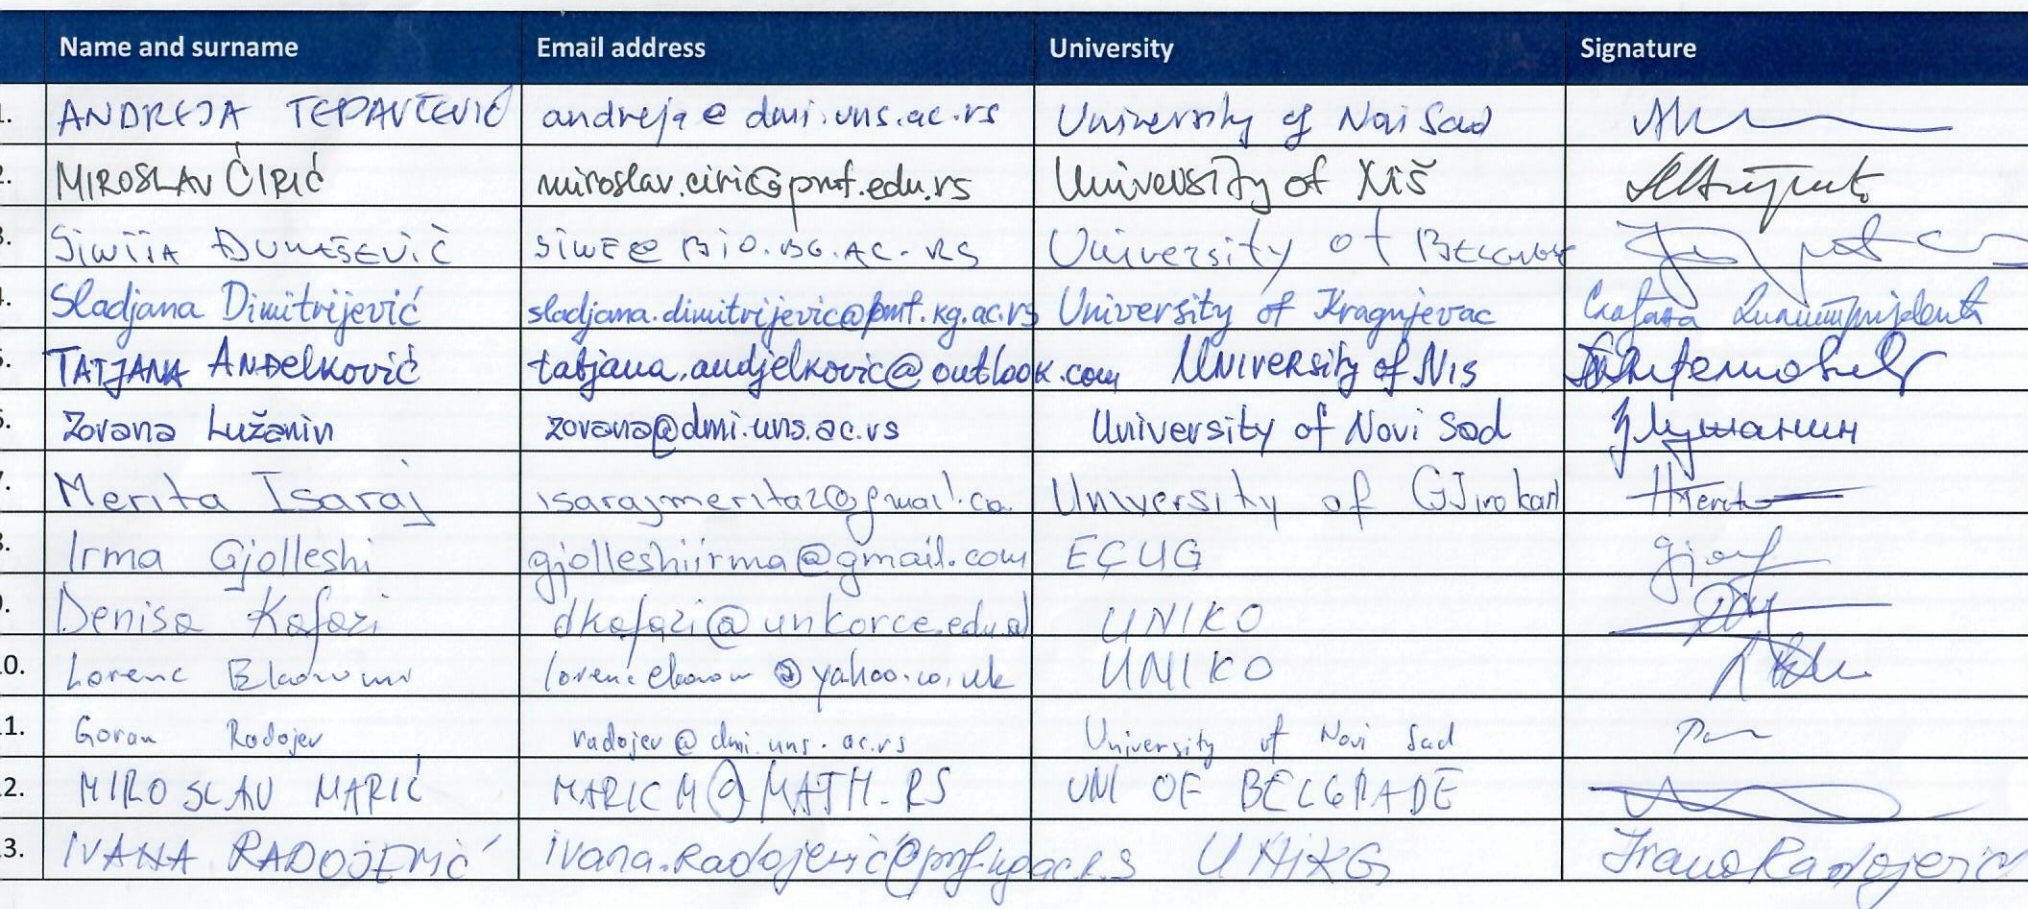 Name and surname Email address University Signature
1. ANDREJA TEPAVČEVIĆ andreja@dmi.uns.ac.rs University of Novi Sad
2. MIROSLAV ĆIRIĆ miroslav.ciric@pmf.edu.rs University of Niš
3. SiNiŠA ĐURAŠEVIĆ SINE@BIO.BG.AC.RS University of BELGRADE
4. Sladjana Dimitrijević sladjana.dimitrijevic@pmf.kg.ac.rs University of Kragujevac
5. TATJANA ANĐelković tatjana.andjelkovic@outlook.com UNIVERSITY of NIS
6. Zorana Lužanin zorana@dmi.uns.ac.rs University of Novi Sad З Лужанин
7. Merita Isaraj isarajmerita2@gmail.co University of GJirokast
8. Irma Gjolleshi gjolleshiirma@gmail.com EÇUG
9. Denisa Kafazi dkafazi@unkorce.edu.al UNIKO
10. Lorenc Ekonomi lorencekonom@yahoo.co.uk UNIKO
11. Goran Radojev radojev@dmi.uns.ac.rs University of Novi Sad
12. MIROSLAV MARIĆ MARICM@MATH.RS UNI OF BELGRADE
13. IVANA RADOJEVIĆ ivana.radojevic@pmf.kg.ac.rs UNIKG Ivana Radojević